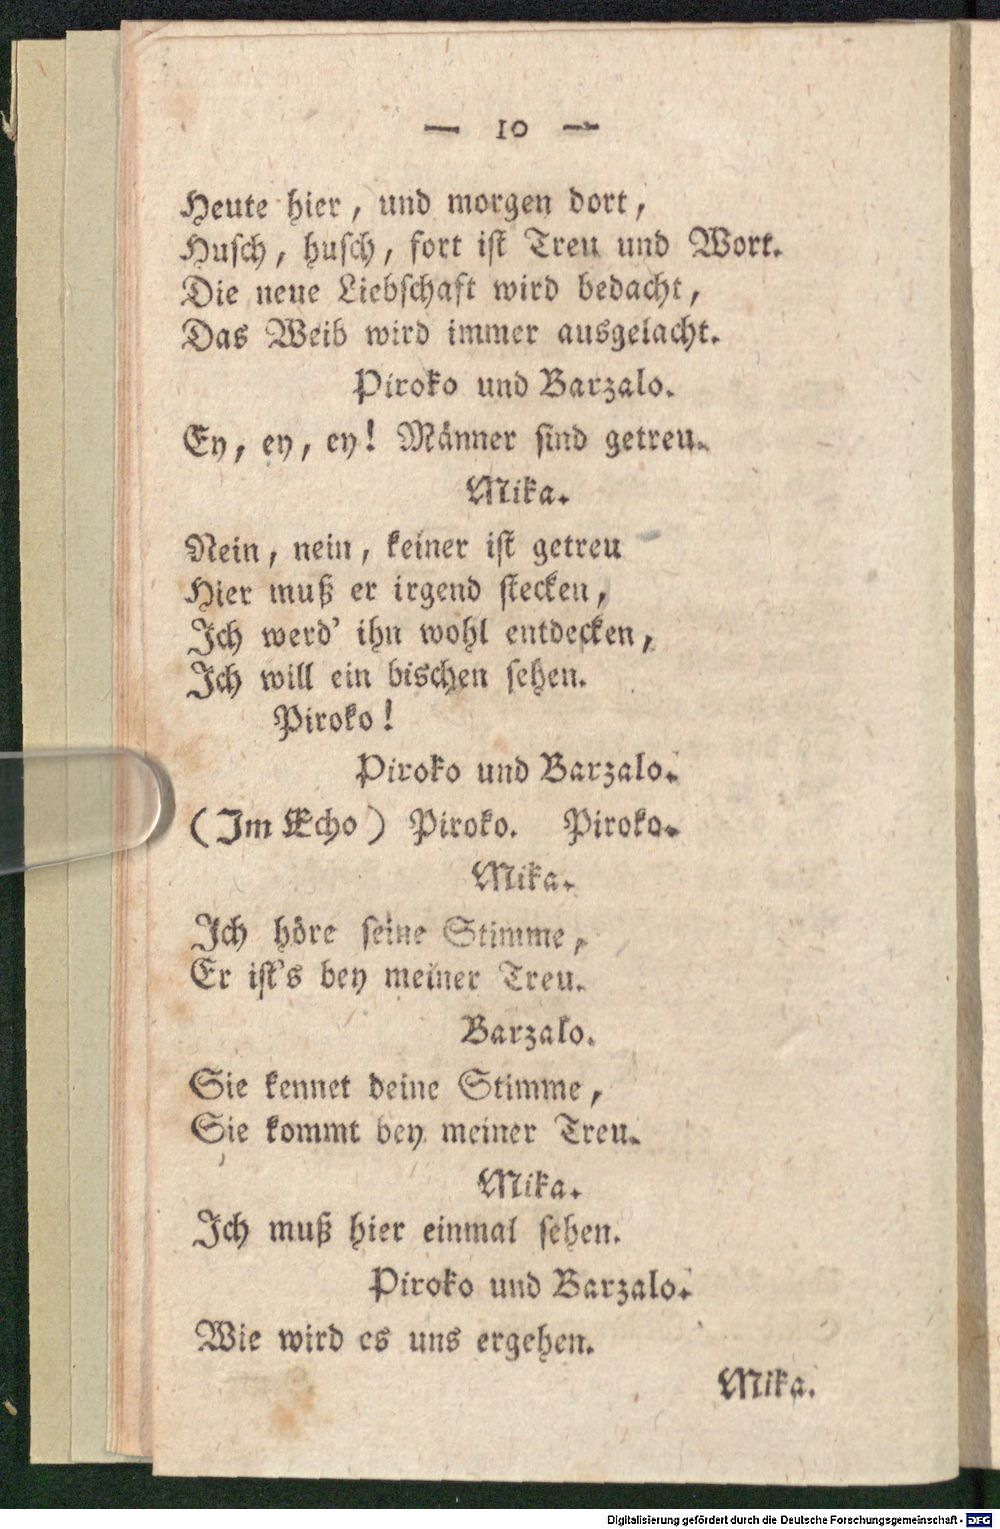 — 10 —
Heute hier, und morgen dort,
Huſch, huſch, fort iſt Treu und Wort.
Die neue Liebſchaft wird bedacht,
Das Weib wird immer ausgelacht.
Piroko und Barzalo.
Ey, ey, ey! Männer ſind getreu.
Mika.
Nein, nein, keiner iſt getreu
Hier muß er irgend ſtecken,
Ich werd' ihn wohl entdecken,
Ich will ein bischen ſehen.
Piroko!
Piroko und Barzalo.
(Im Echo) Piroko. Piroko.
Mika.
Ich höre ſeine Stimme,
Er iſt's bey meiner Treu.
Barzalo.
Sie kennet deine Stimme,
Sie kommt bey meiner Treu.
Mika.
Ich muß hier einmal ſehen.
Piroko und Barzalo.
Wie wird es uns ergehen.
Mika.
Digitalisierung gefördert durch die Deutsche Forschungsgemeinschaft - DFG